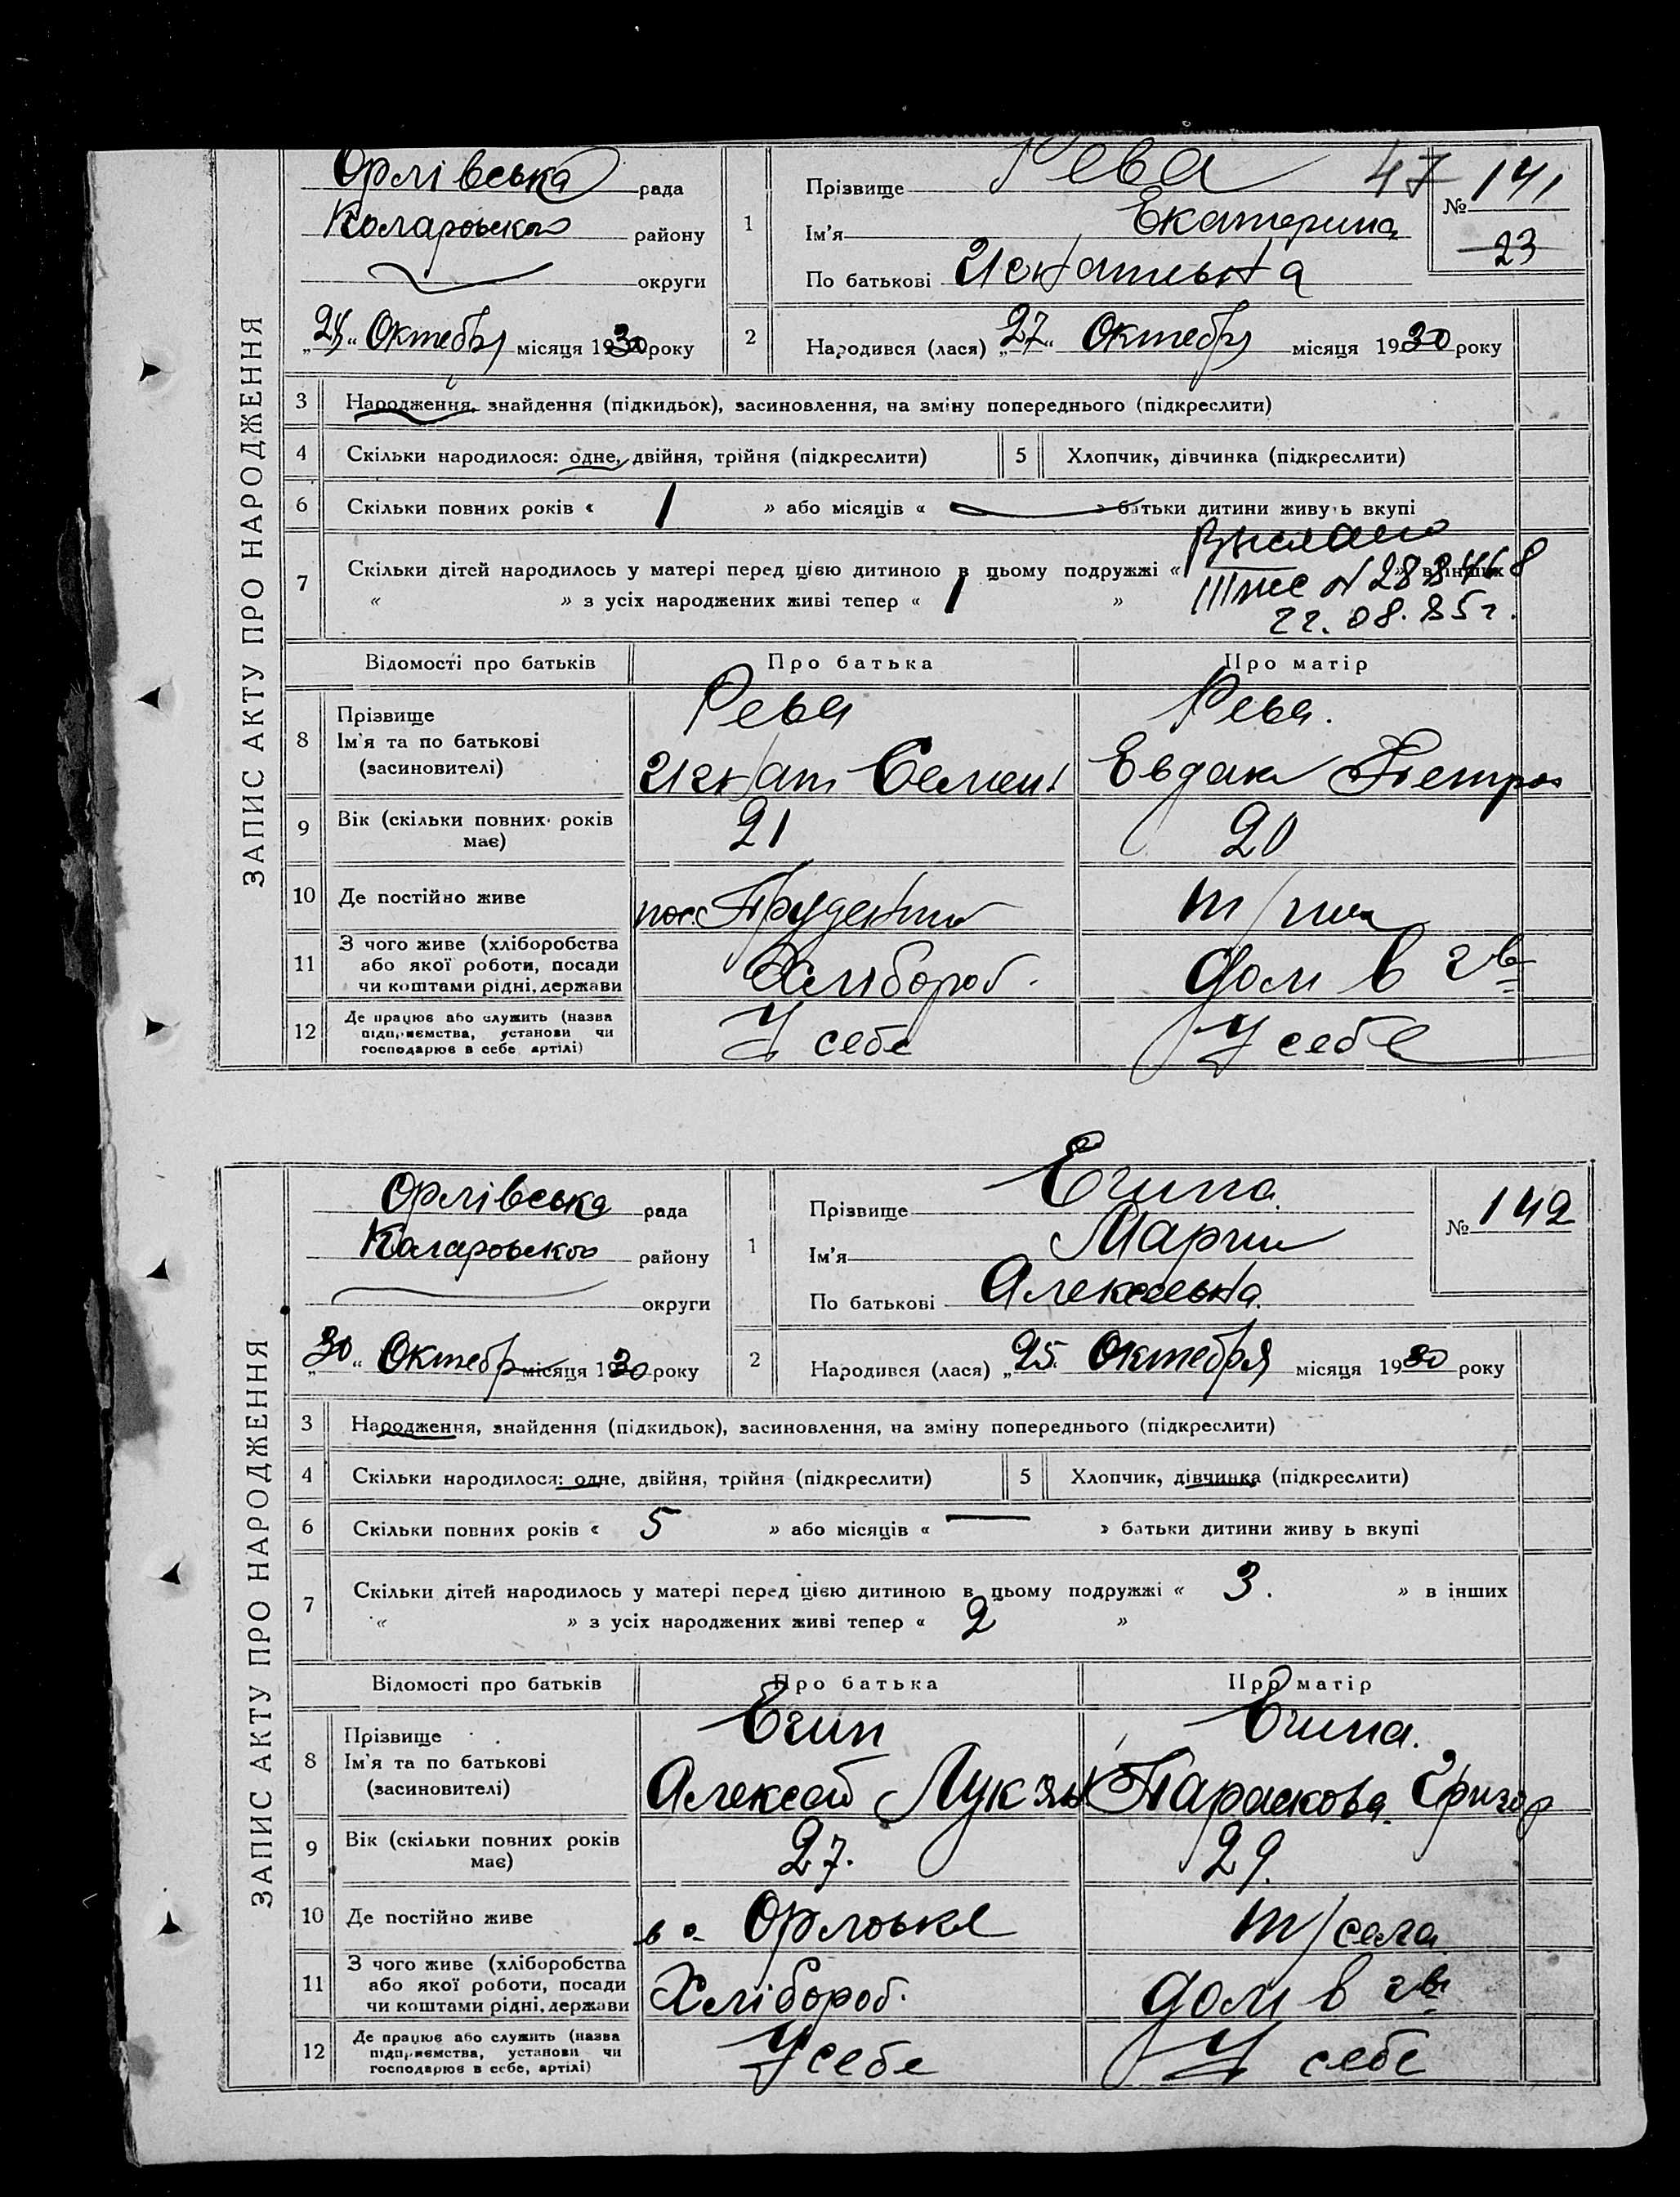 ЗАПИС АКТУ ПРО НАРОДЖЕННЯ
Орлівська рада
Коларовского району
округи
Октебря місяця 1930 року
1 Прізвище Рева
Ім'я Екатерина
По батькові Игнатьевна
47
№ 141
23
2 Народився (лася) „27“ Октебря місяця 1930 року
3 Народження, знайдення (підкидьок), засиновлення, на зміну попереднього (підкреслити)
4 Скільки народилося: одне, двійня, трійня (підкреслити) 5 Хлопчик, дівчинка (підкреслити)
6 Скільки повних років « 1 » або місяців « » батьки дитини живуть вкупі
7 Скільки дітей народилось у матері перед цією дитиною в цьому подружжі « » в інших
« » з усіх народжених живі тепер « 1 »
Выслано
№ 288468
22.08.85г.
Відомості про батьків Про батька Про матір
8 Прізвище Рева Рева.
Ім'я та по батькові
(засиновителі) Игнат Семен Евдак Петров
9 Вік (скільки повних років має) 21 20
10 Де постійно живе пос. т/
11 З чого живе (хліборобства або якої роботи, посади чи коштами рідні, держави Хлібороб. дом в гве
12 Де працює або служить (назва підприємства, установи чи господарює в себе артілі) У себе У себе
ЗАПИС АКТУ ПРО НАРОДЖЕННЯ
Орлівська рада
Коларовского району
округи
„30“ Октебря місяця 1930 року
1 Прізвище Егина
Ім'я Мария
По батькові Алексеевна
№ 142
2 Народився (лася) „25. Октебря місяця 1930 року
3 Народження, знайдення (підкидьок), засиновлення, на зміну попереднього (підкреслити)
4 Скільки народилося: одне, двійня, трійня (підкреслити) 5 Хлопчик, дівчинка (підкреслити)
6 Скільки повних років « 5 » або місяців « — » батьки дитини живу ь вкупі
7 Скільки дітей народилось у матері перед цією дитиною в цьому подружжі « 3. » в інших
« » з усіх народжених живі тепер « 2 »
Відомості про батьків Про батька Про матір
8 Прізвище Егин Егина.
Ім'я та по батькові
(засиновителі) Алексей Лук'ян Параскова Григор
9 Вік (скільки повних років має) 27. 29.
10 Де постійно живе в с. Орловке т/села
11 З чого живе (хліборобства або якої роботи, посади чи коштами рідні, держави Хлібороб. дом в гве
12 Де працює або служить (назва підприємства, установи чи господарює в себе, артілі) У себе У себе